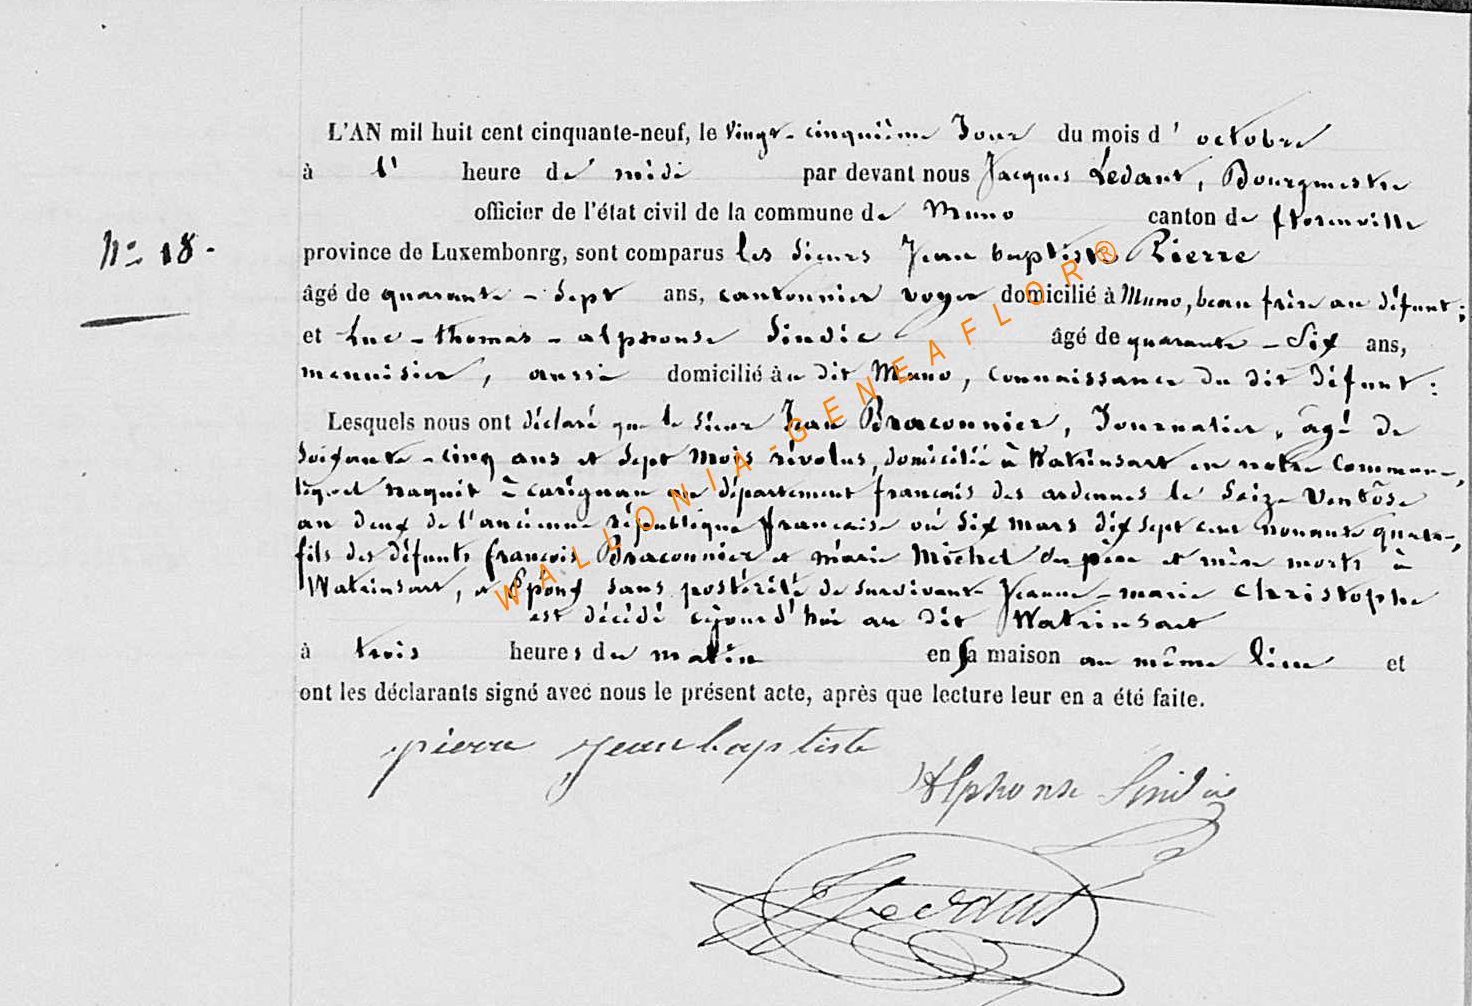 L'AN mil huit cent cinquante-neuf, le vingt-cinquième Jour du mois d'octobre
à l' heure de midi par devant nous Jacques Ledant, Bourgmestre
officier de l'état civil de la commune de Muno canton de florenville
Nº 18.
province de Luxembonrg, sont comparus les sieurs Jean baptiste Pierre
âgé de quarante-sept ans, cantonnier voyer domicilié à Muno, beau frère au défunt;
et Luc-thomas-alphonse Sindic âgé de quarante-six ans,
menuisier, aussi domicilié au dit Muno, connaissance du dit défunt:
Lesquels nous ont déclaré que le sieur Jean Braconnier, Journalier, âgé de
soixante-cinq ans et sept mois révolus, domicilié à Watrinsart en notre commune,
lequel naquit à carignan au département français des ardennes le seize ventôse
an deux de l'ancienne république française où six mars dix sept cent nonante quatre,
fils des défunts françois Braconnier et marie Michel du père et mère morts à
Watrinsart, et Époux sans postérité de survivante Jeanne-marie christophe
est décédé cejourd'hui au dit Watrinsart
à trois heures du matin en sa maison au même lieu et
ont les déclarants signé avec nous le présent acte, après que lecture leur en a été faite.
pierre jean baptiste
Alphonse Sindic
Ledant
WALLONIA-GENEAFLOR®